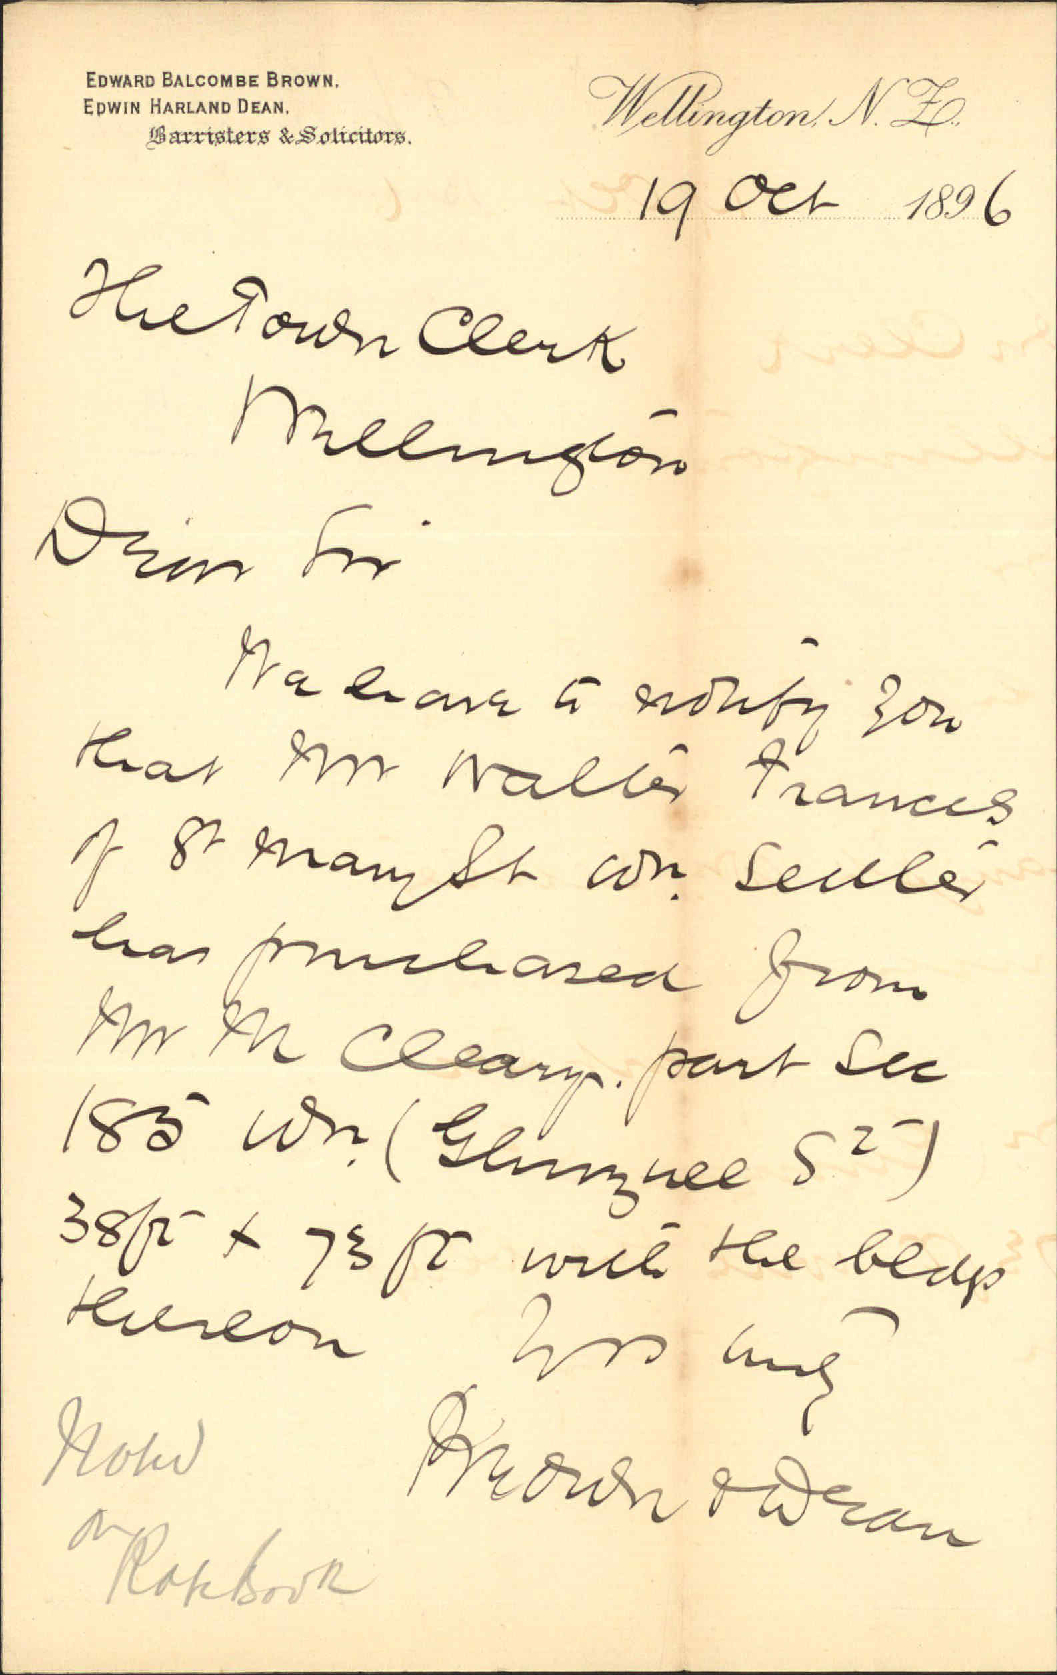 EDWARD BALCOMBE BROWN.
EDWIN HARLAND DEAN.
Barristers & Solicitors.
Wellington, N.Z.
19 Oct 1896
The Town Clerk
Wellington
Dear Sir
We have to notify you
that Mr Walter Frances
of St Mary St Wn. Settler
has purchased from
Mr M Cleary. part Sec
185 Wn. (
St)
38ft x 73 ft with the bldgs
thereon Yrs truly
Brown & Dean
Noted
on
Rate Book